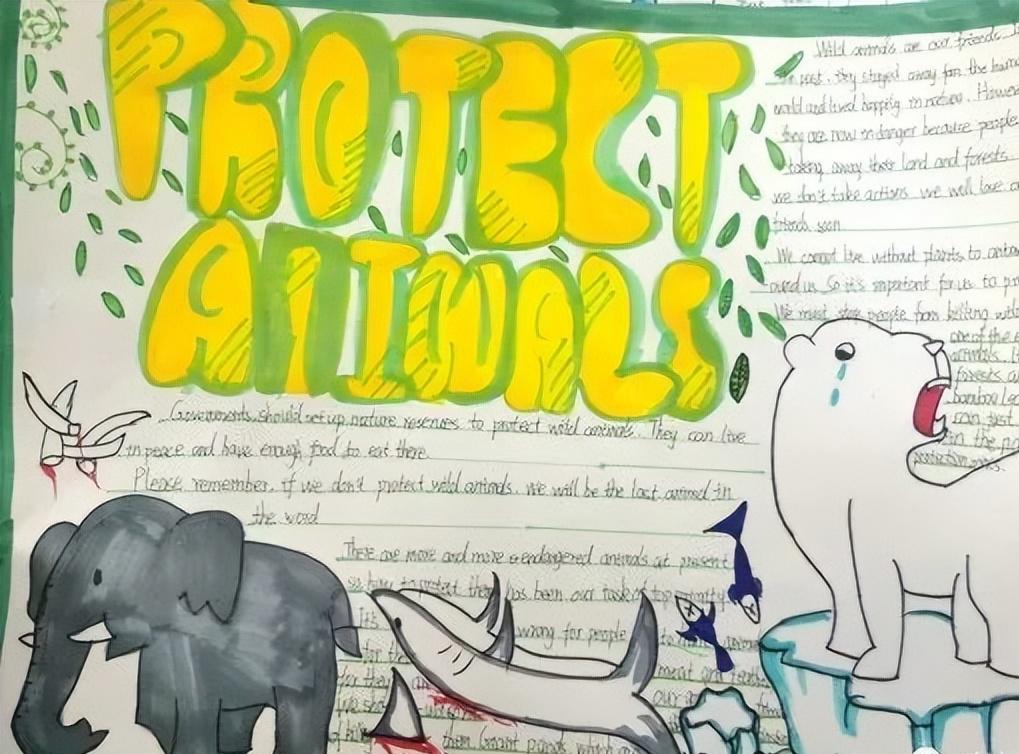 PROTECT
ANIMALS
Wild animals are our friends. I
In past, they stayed away far the huma
world and lived happing in nature. Howev
they are now in danger because people
taking away their land and forests
we don't take actions. we will lose o
friends soon
We connot live without plants to anim
ound us. So it's important for us to pr
We must stop people from killing wild
one of the e
animals. I
forests a
bamboo
can just
in the pa
protection
Governments should set up nature reserves to protect wild animals. They can live
in peace and have enough food to eat there.
Please, remember, if we don't protect wild animals. We will be the last animal in
the word
There are more and more endangered animals at present
so how to protect them has been our task of top priority
It's wrong for people to
for the ment and
for they an our
We sho
them Grant